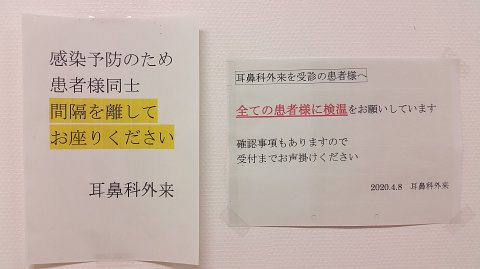 感染予防のため
患者様同士
間隔を離して
お座りください
耳鼻科外来
耳鼻科外来を受診の患者様へ
全ての患者様に検温をお願いしています
確認事項もありますので
受付までお声掛けください
2020.4.8 耳鼻科外来